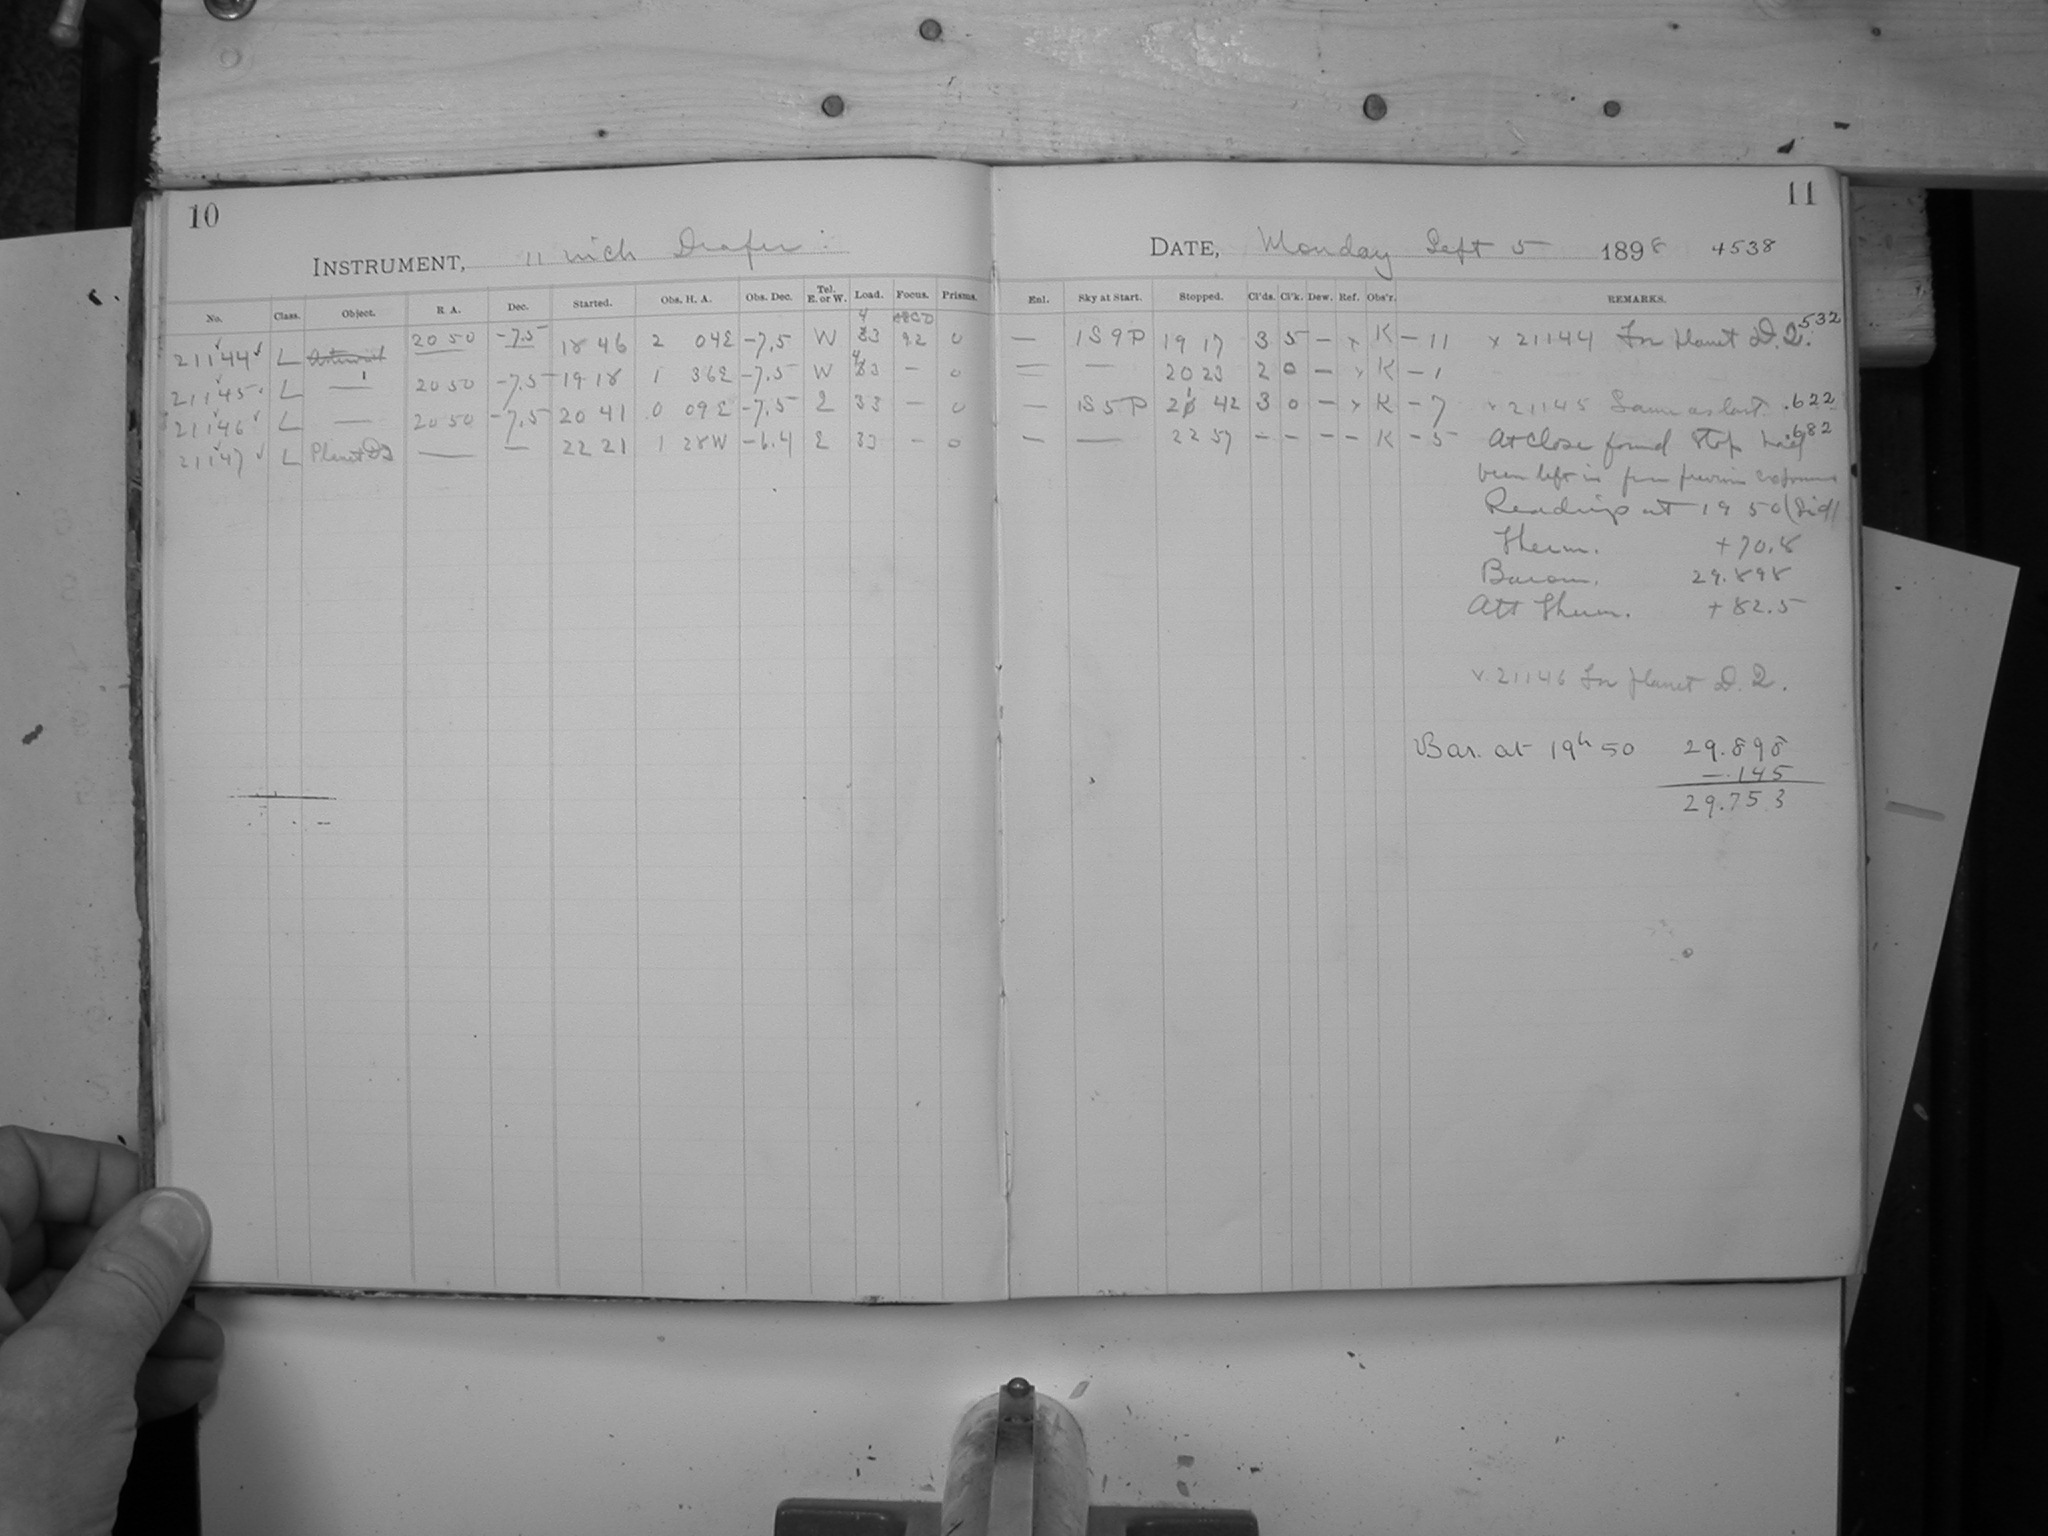 10
INSTRUMENT, 11 inch Draper.
No. Class. Object. R. A. Dec. Started. Obs. H. A. Obs. Dec. Tel. E. or W. Load. Focus. Prisms.
21144 L Asteroid 20 50 -7.5 18 46 2 04E -7.5 W 43 ABCD 92 0
21145 L — 20 50 -7.5 19 18 1 36E -7.5 W 43 — 0
21146 L — 20 50 -7.5 20 41 0 09E -7.5 E 33 — 0
21147 L Planet DQ — — 22 21 1 28W -6.4 E 33 — 0
11
DATE, Monday Sept 5 1898 4538
Enl. Sky at Start. Stopped. Cl'ds. Cl'k. Dew. Ref. Obs'r. REMARKS.
— 1S9P 19 17 3 5 — x K — 11 x 21144 For planet D.Q. .532
— — 20 23 2 0 — x K — 1
— 1S5P 21 42 3 0 — x K — 7 x 21145 Same as last. .622
— — 22 57 — — — — K — 5 At close found stop had .682
been left in from previous exposures
Readings at 19 50 (Sid)
Therm. +70.8
Barom. 29.898
Att Therm. +82.5
x 21146 For planet D.Q.
Bar. at 19h 50 29.898
-.145
29.753